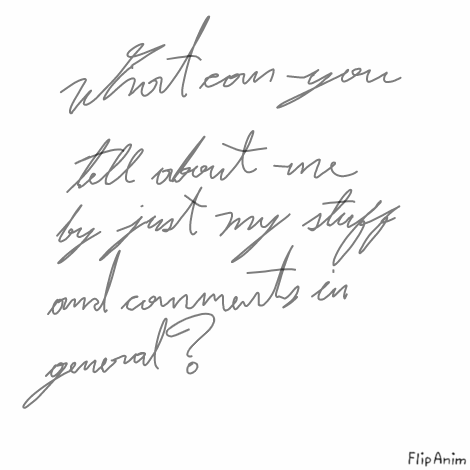 What can you
tell about me
by just my stuff
and comments in
general?
FlipAnim